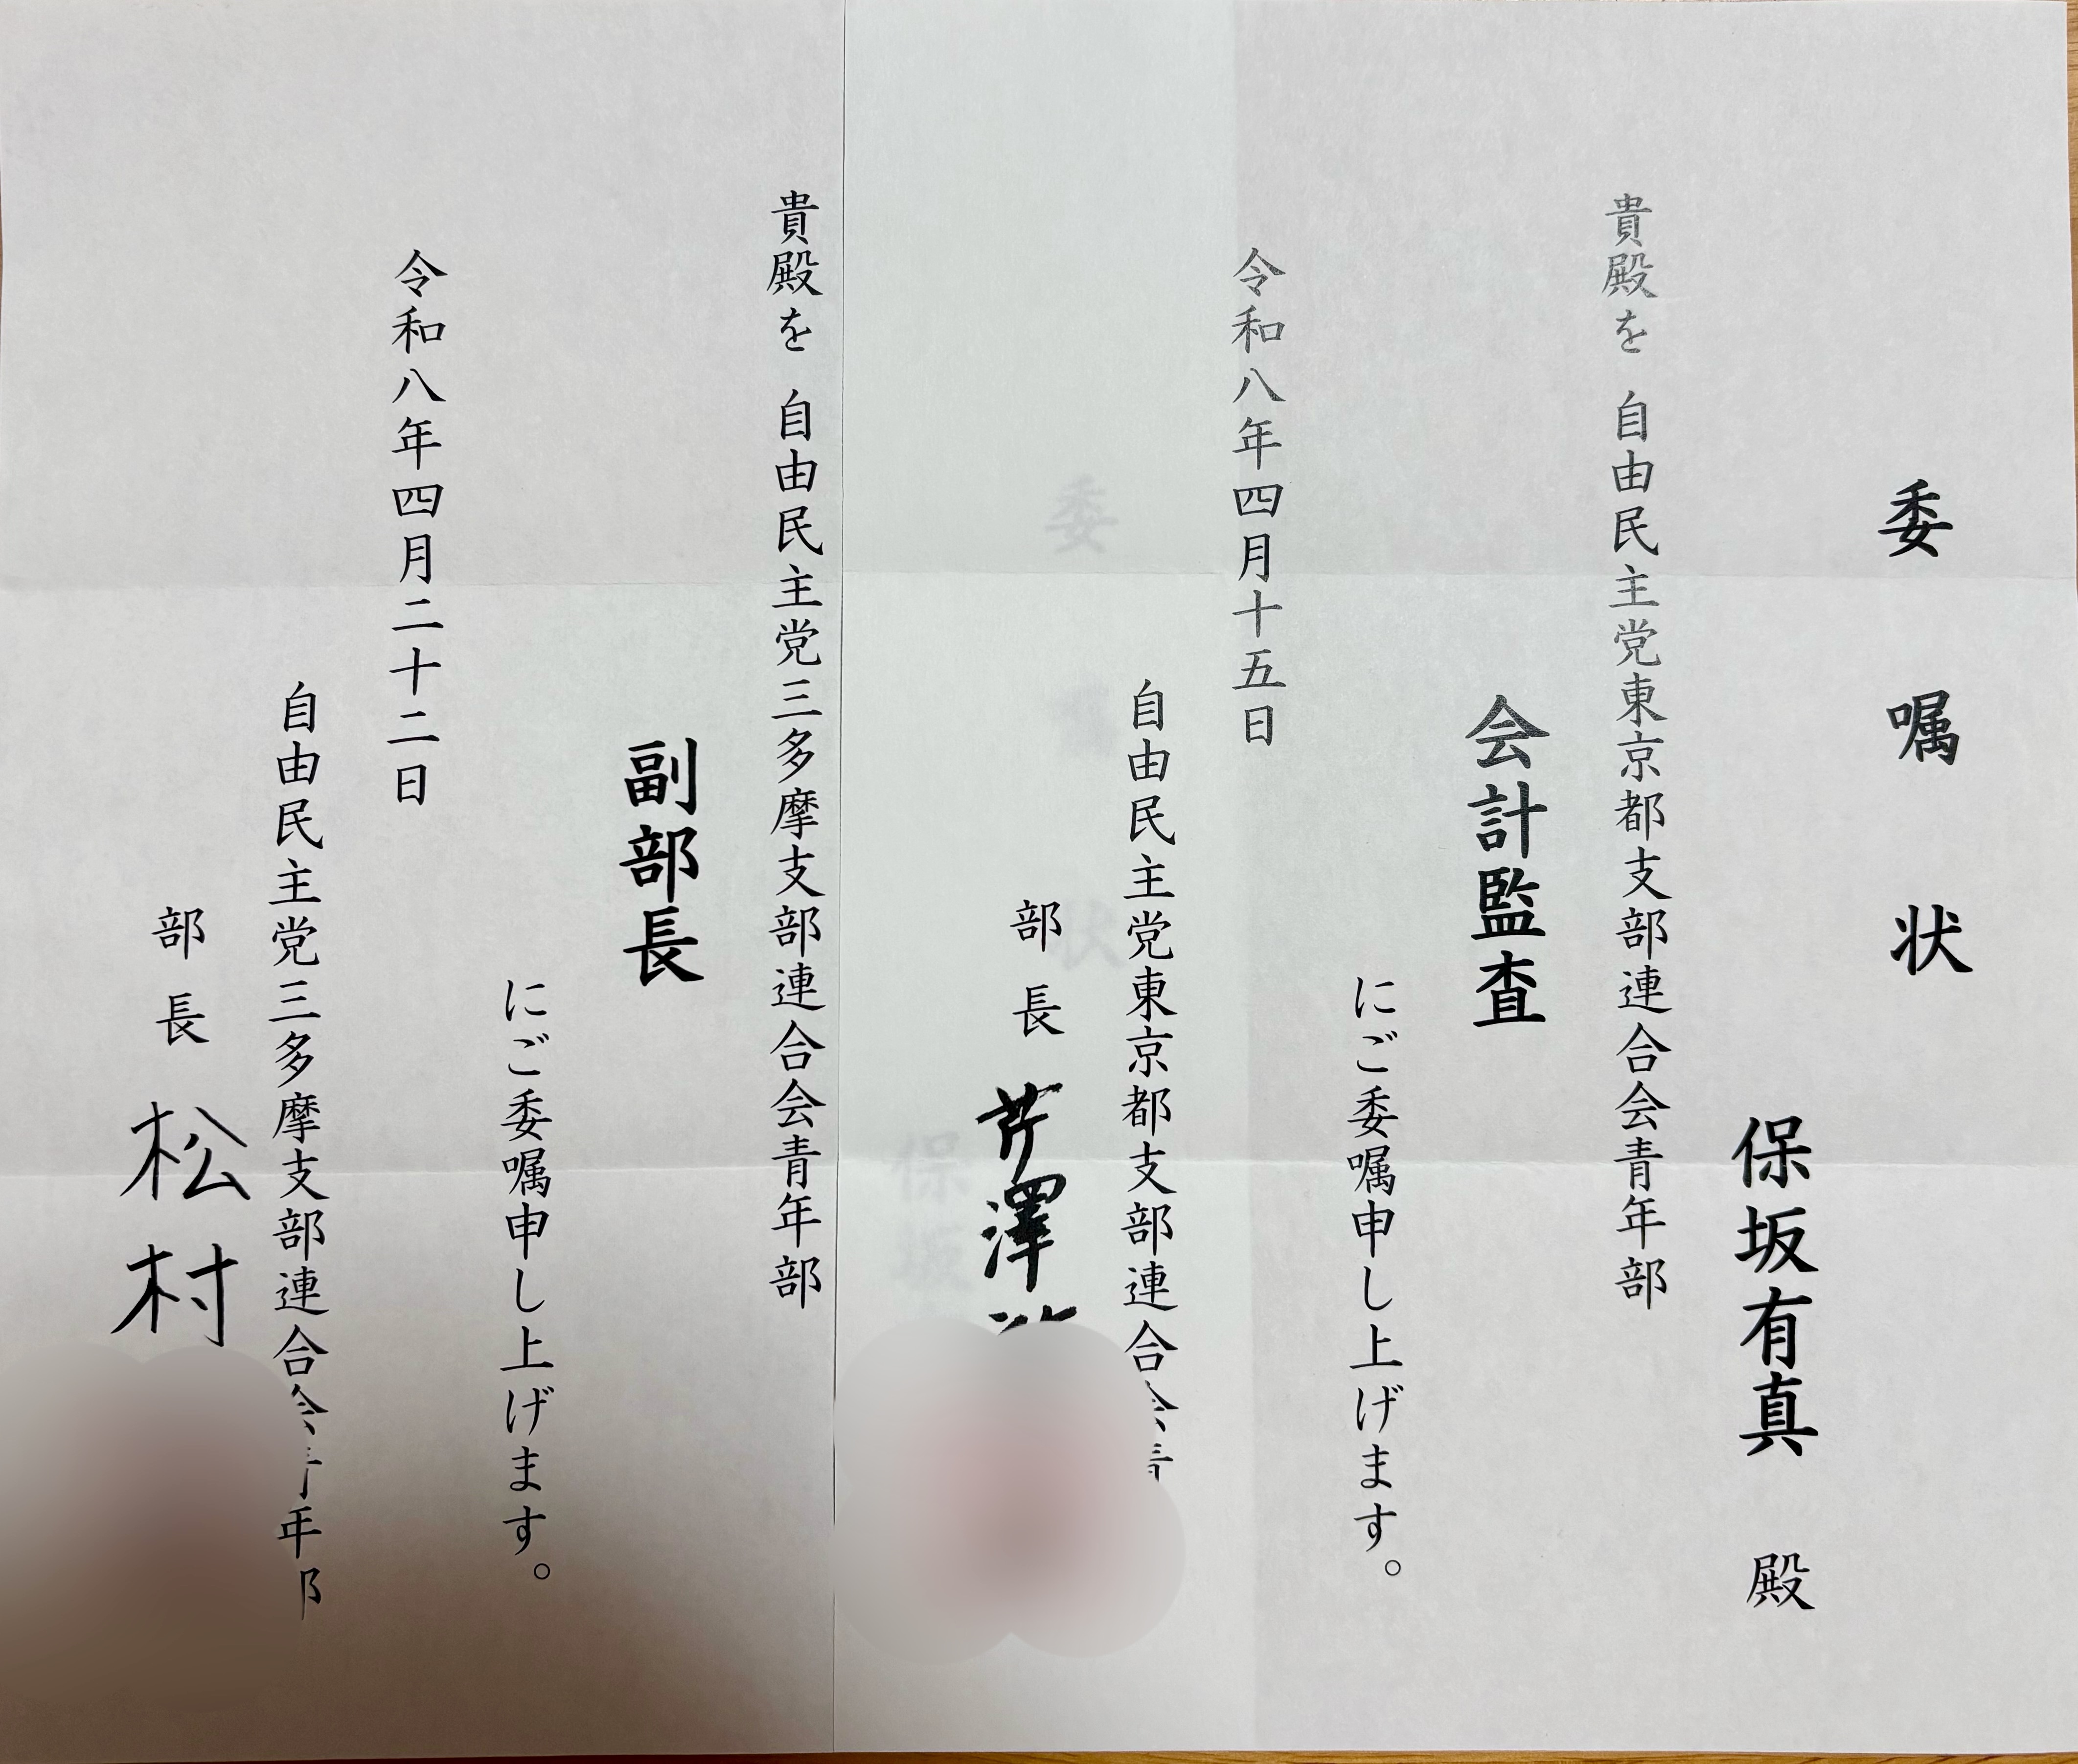 委嘱状
保坂有真 殿
貴殿を 自由民主党東京都支部連合会青年部
会計監査
にご委嘱申し上げます。
令和八年四月十五日
自由民主党東京都支部連合会青
部長 芹澤
貴殿を 自由民主党三多摩支部連合会青年部
副部長
にご委嘱申し上げます。
令和八年四月二十二日
自由民主党三多摩支部連合会青年部
部長 松村